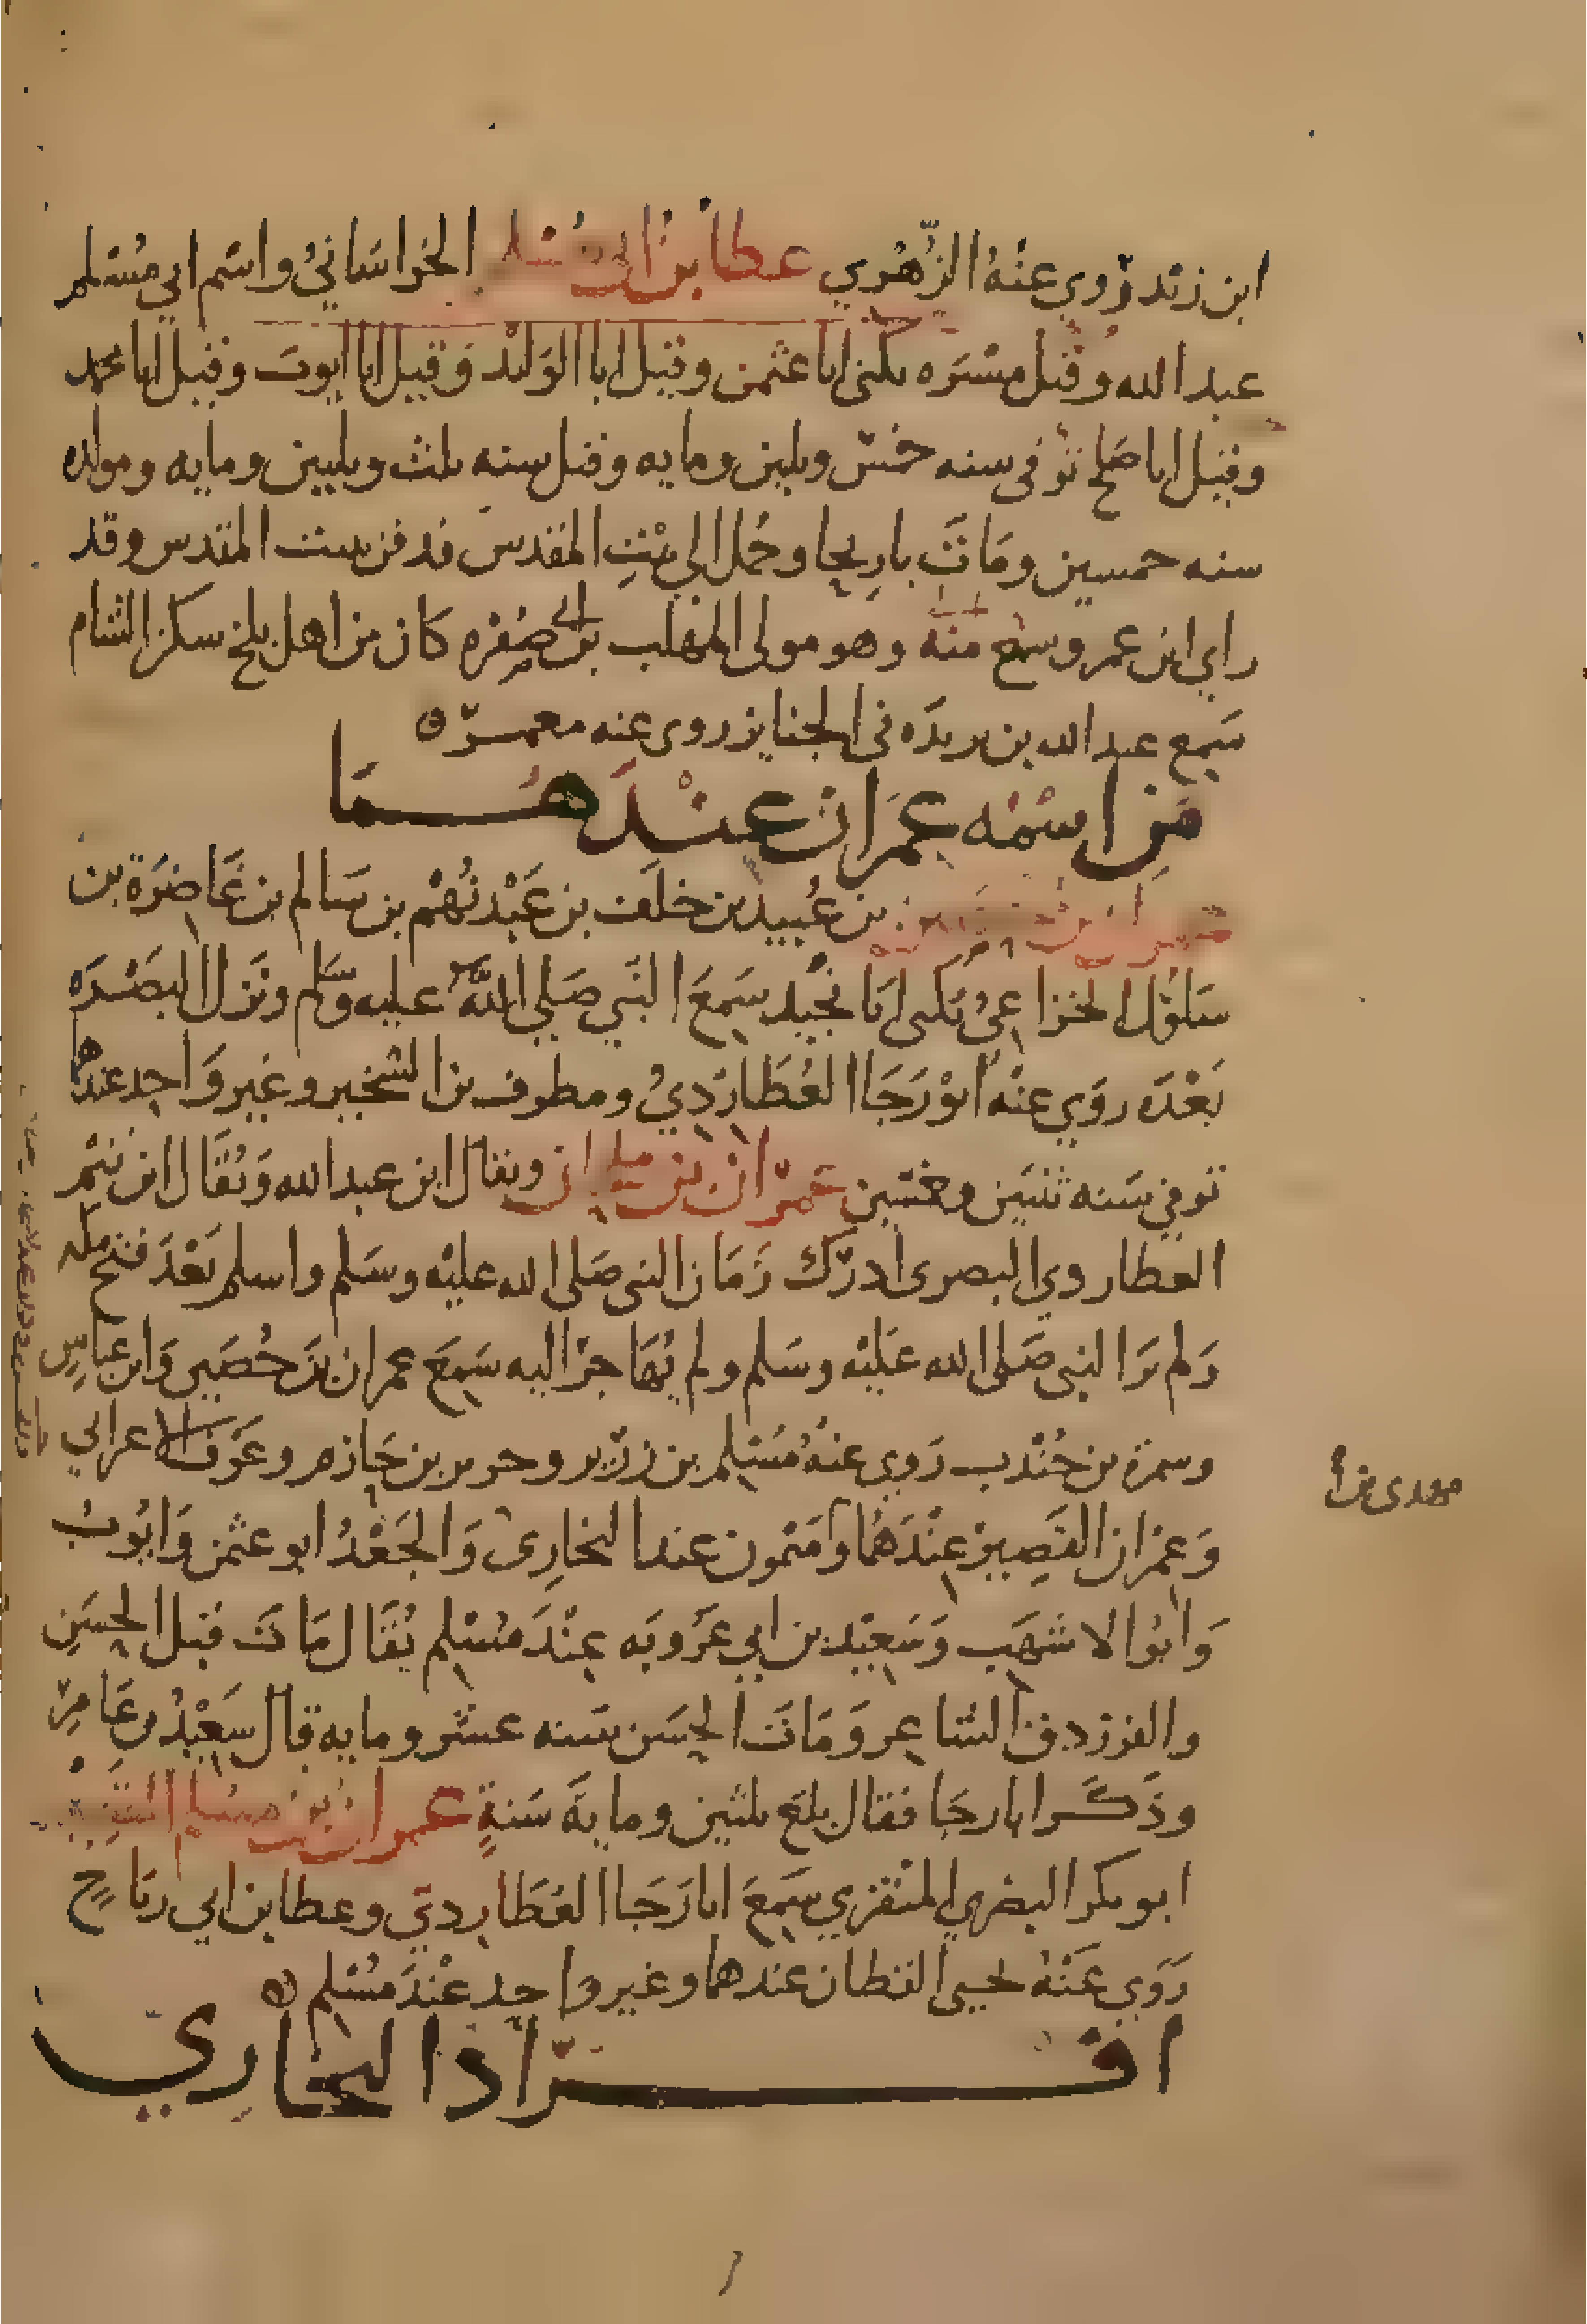 ابن زيد روي عنه الزهري عطا بن ابي مسلم الخراساني واسم ابي مسلم
عبد الله وقيل ميسره يكنى ابا عثمن وقيل ابا الوليد وقيل ابا ايوب وقيل ابا محمد
وقيل ابا صلح توفي سنه خمس وثلثين ومايه وقيل سنه ثلث وثلثين ومايه ومولده
سنه خمسين ومات باريحا وحمل الي بيت المقدس فدفن ببيت المقدس وقد
راي ابن عمر وسمع منه وهو مولى المهلب بن ابي صفره كان من اهل بلخ سكن الشام
سمع عبد الله بن بريده في الجنايز روى عنه معمر
من اسمه عمران عندهما
عمران بن حصين بن عبيد بن خلف بن عبد نهم بن سالم بن غاضرة بن
سلول الخزاعي يكنى ابا نجيد سمع النبي صلي الله عليه وسلم ونزل البصره
بعده روي عنه ابو رجا العطاردي ومطرف بن الشخير وغير واحد عندهما
توفي سنه ثنتين وخمسين عمران بن ملحان ويقال ابن عبد الله ويقال ابن تيم
العطاردي البصري ادرك زمان النبي صلى الله عليه وسلم واسلم بعد فتح مكه
ولم ير النبي صلى الله عليه وسلم ولم يهاجر اليه سمع عمران بن حصين وابن عباس
وسمرة بن جندب روي عنه مسلم بن زرير وجرير بن حازم وعوف الاعرابي
وعمران القصير عندهما وميمون عند البخاري والجعد ابو عثمن وايوب
وابو الاشهب وسعيد بن ابي عروبه عند مسلم يقال مات قبل الحسن
والفرزدق الشاعر ومات الحسن سنه عشر ومايه قال سعيد بن عامر
وذكر ابا رجا فقال بلغ ثلثين وماية سنة عمران بن مسلم القصير
ابو بكر البصري المنقري سمع ابا رجا العطاردي وعطا بن ابي رباح
روي عنه يحيى القطان عندهما وغير واحد عند مسلم
افراد البخاري
مهدى بن